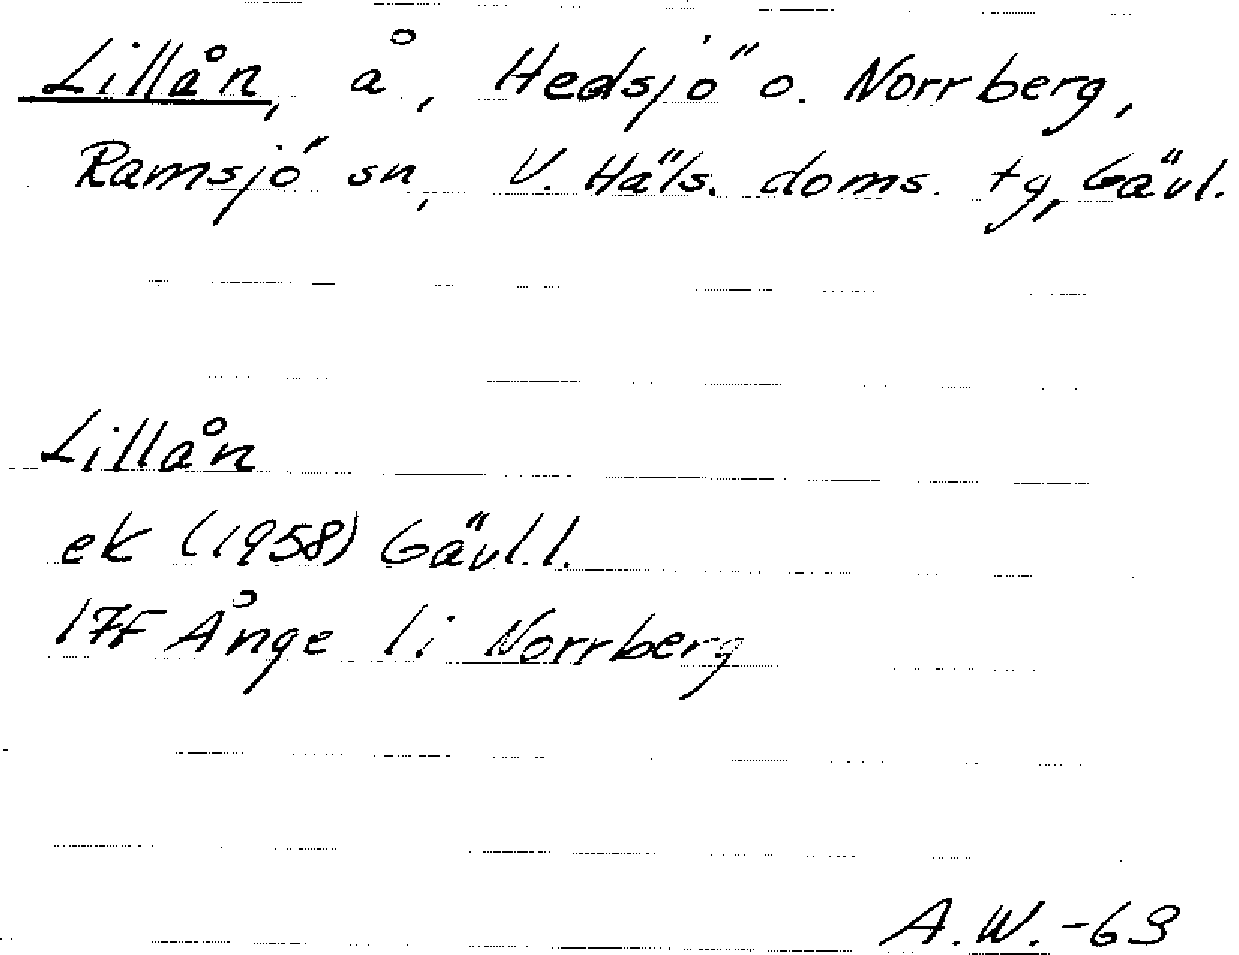 Lillån, å, Hedsjö o. Norrberg,
Ramsjö sn, V. Häls. doms. tg, Gävl.
Lillån
ek (1958) Gävl.l.
17F Ånge li Norrberg
A.W.-63